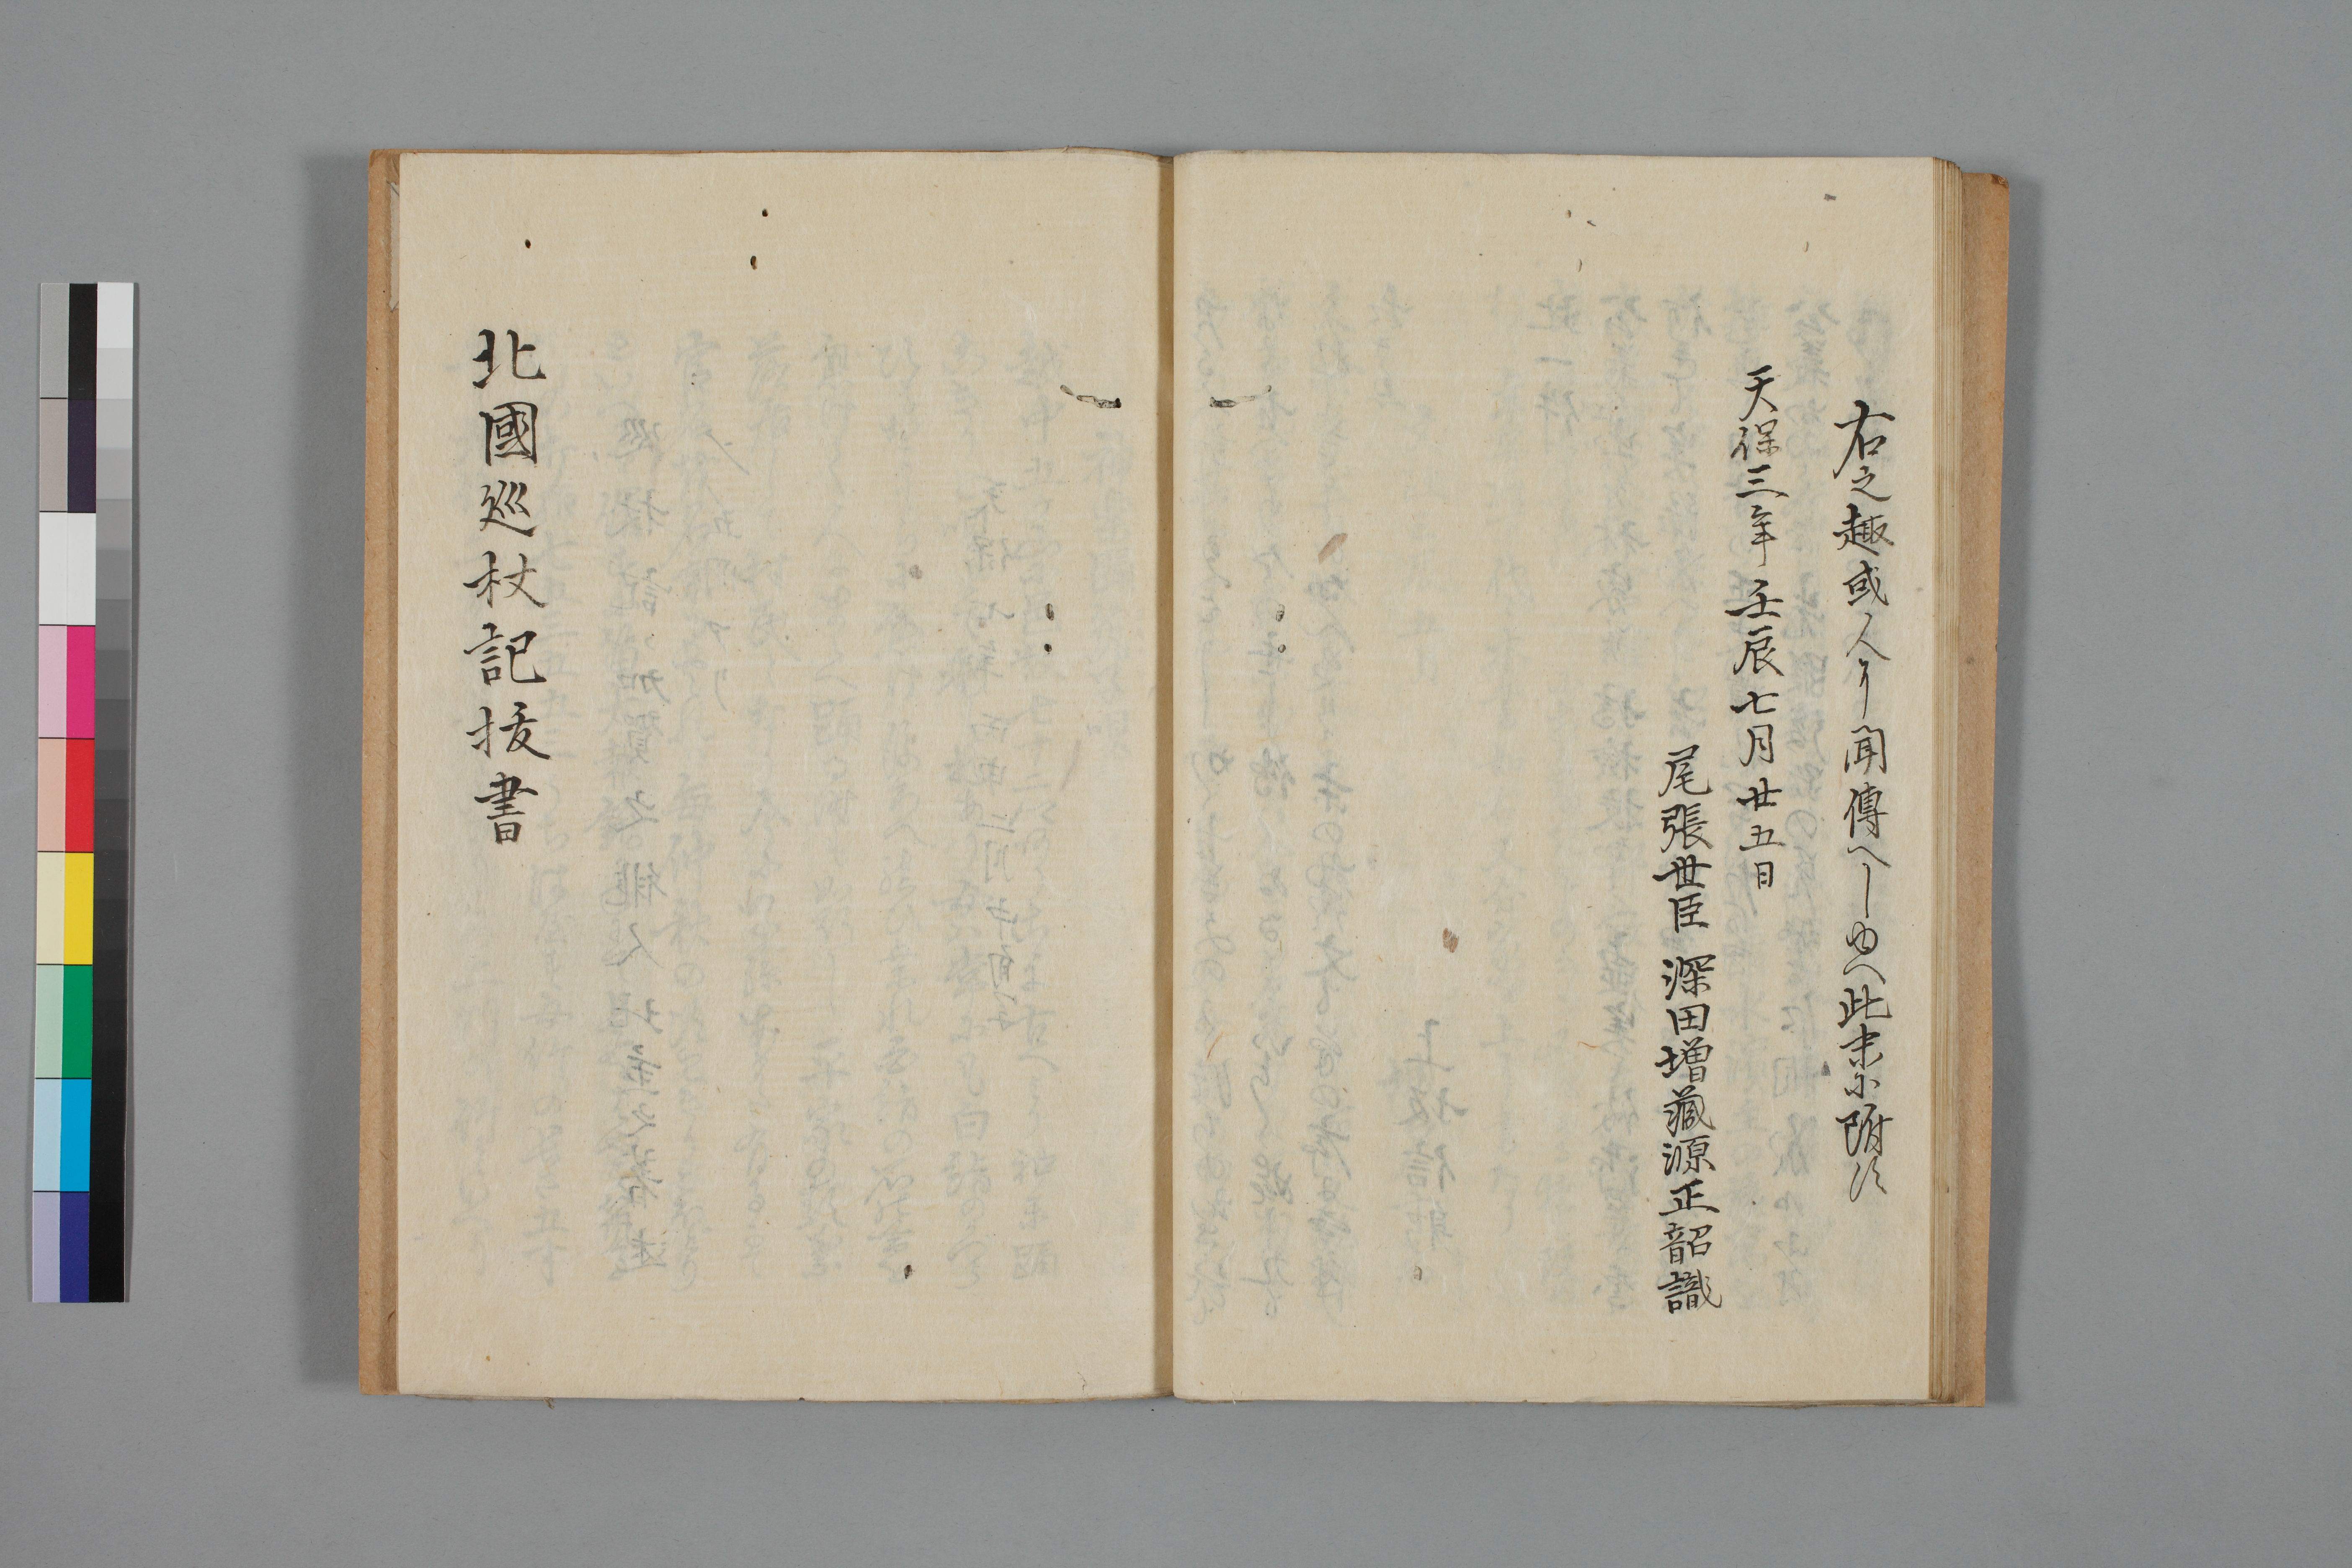 右之趣或人ゟ聞傳へしゆへ此末ニ附ス
天保三年壬辰七月廿五日
尾張世臣深田増蔵源正韶識
北國巡杖記抜書